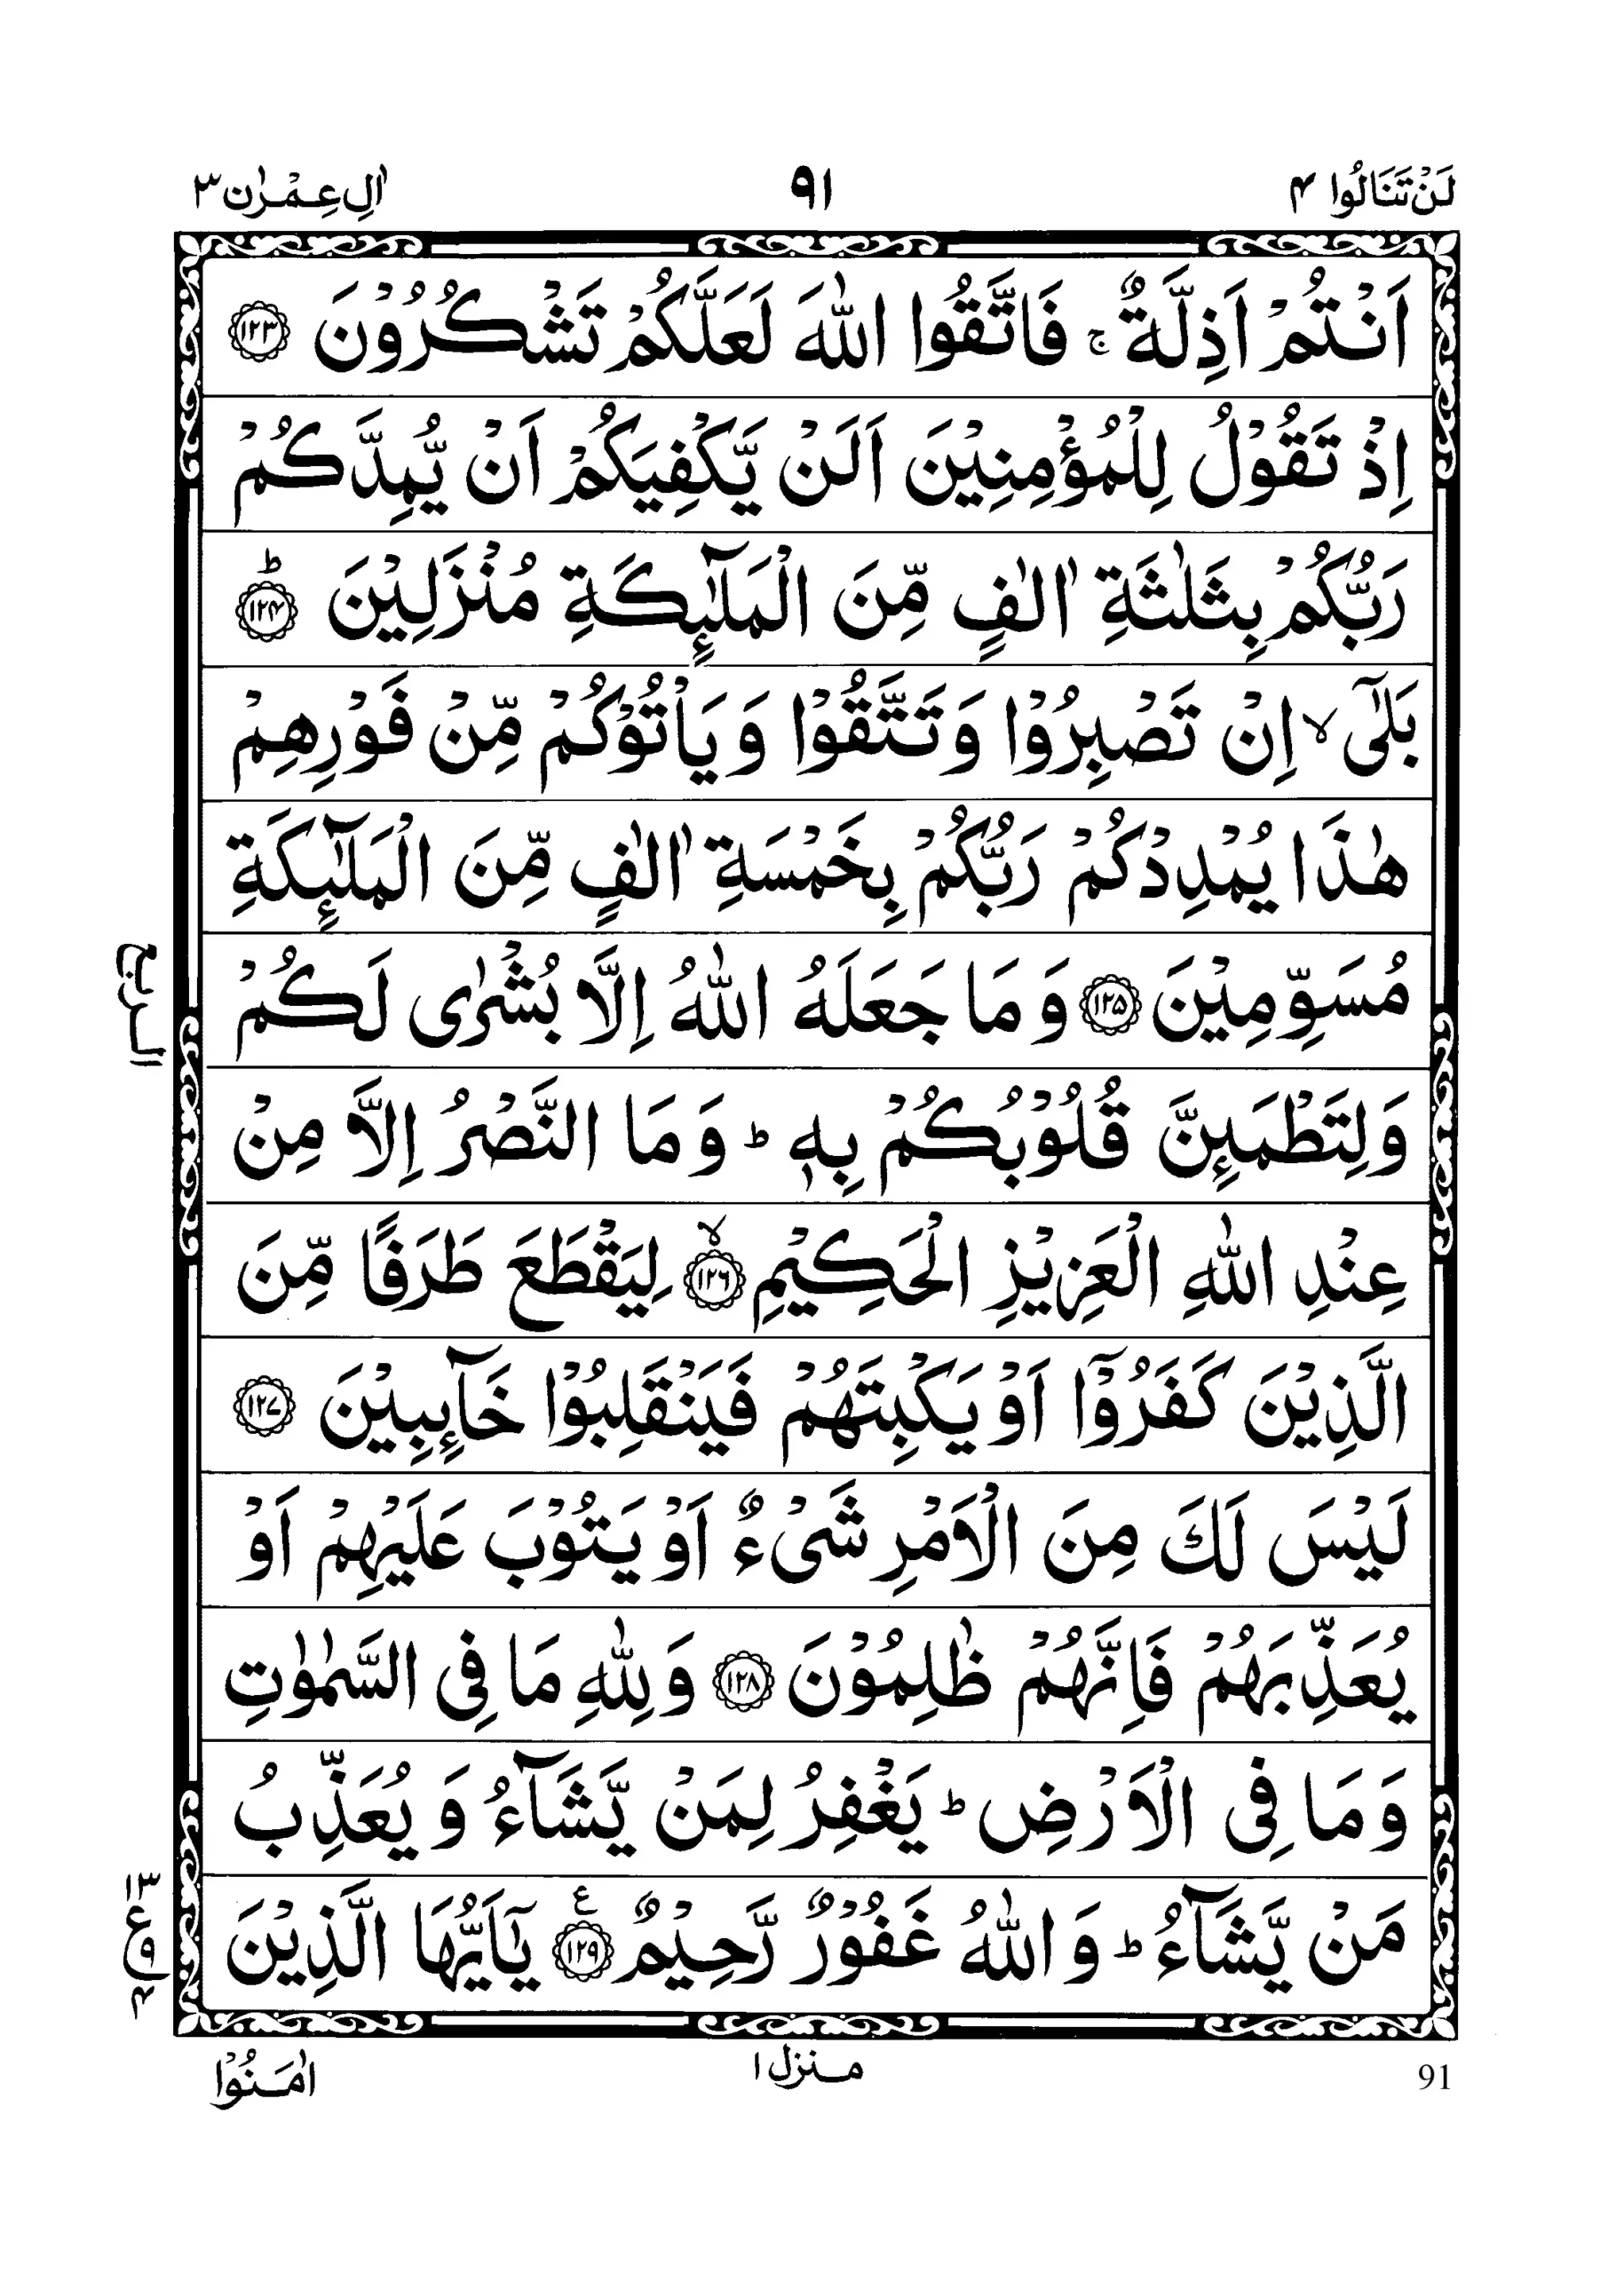 لَنْ تَنَالُوا ۴ ٩١ اٰلِ عِمْرٰن ٣
اَنْتُمْ اَذِلَّةٌ ۚ فَاتَّقُوا اللّٰهَ لَعَلَّكُمْ تَشْكُرُوْنَ ﴿۱۲۳﴾
اِذْ تَقُوْلُ لِلْمُؤْمِنِيْنَ اَلَنْ يَّكْفِيَكُمْ اَنْ يُّمِدَّكُمْ
رَبُّكُمْ بِثَلٰثَةِ اٰلٰفٍ مِّنَ الْمَلٰٓئِكَةِ مُنْزَلِيْنَ ؕ﴿۱۲۴﴾
بَلٰٓى ۙ اِنْ تَصْبِرُوْا وَتَتَّقُوْا وَيَاْتُوْكُمْ مِّنْ فَوْرِهِمْ
هٰذَا يُمْدِدْكُمْ رَبُّكُمْ بِخَمْسَةِ اٰلٰفٍ مِّنَ الْمَلٰٓئِكَةِ
مُسَوِّمِيْنَ ﴿۱۲۵﴾ وَمَا جَعَلَهُ اللّٰهُ اِلَّا بُشْرٰى لَكُمْ
الربع
وَلِتَطْمَئِنَّ قُلُوْبُكُمْ بِهٖ ؕ وَمَا النَّصْرُ اِلَّا مِنْ
عِنْدِ اللّٰهِ الْعَزِيْزِ الْحَكِيْمِ ۙ﴿۱۲۶﴾ لِيَقْطَعَ طَرَفًا مِّنَ
الَّذِيْنَ كَفَرُوْٓا اَوْ يَكْبِتَهُمْ فَيَنْقَلِبُوْا خَآئِبِيْنَ ﴿۱۲۷﴾
لَيْسَ لَكَ مِنَ الْاَمْرِ شَىْءٌ اَوْ يَتُوْبَ عَلَيْهِمْ اَوْ
يُعَذِّبَهُمْ فَاِنَّهُمْ ظٰلِمُوْنَ ﴿۱۲۸﴾ وَلِلّٰهِ مَا فِى السَّمٰوٰتِ
وَمَا فِى الْاَرْضِ ؕ يَغْفِرُ لِمَنْ يَّشَآءُ وَيُعَذِّبُ
مَنْ يَّشَآءُ ؕ وَاللّٰهُ غَفُوْرٌ رَّحِيْمٌ ﴿۱۲۹﴾ ع يٰٓاَيُّهَا الَّذِيْنَ
۱۳
ع
۹
۴
اٰمَنُوْا منزل ١ 91